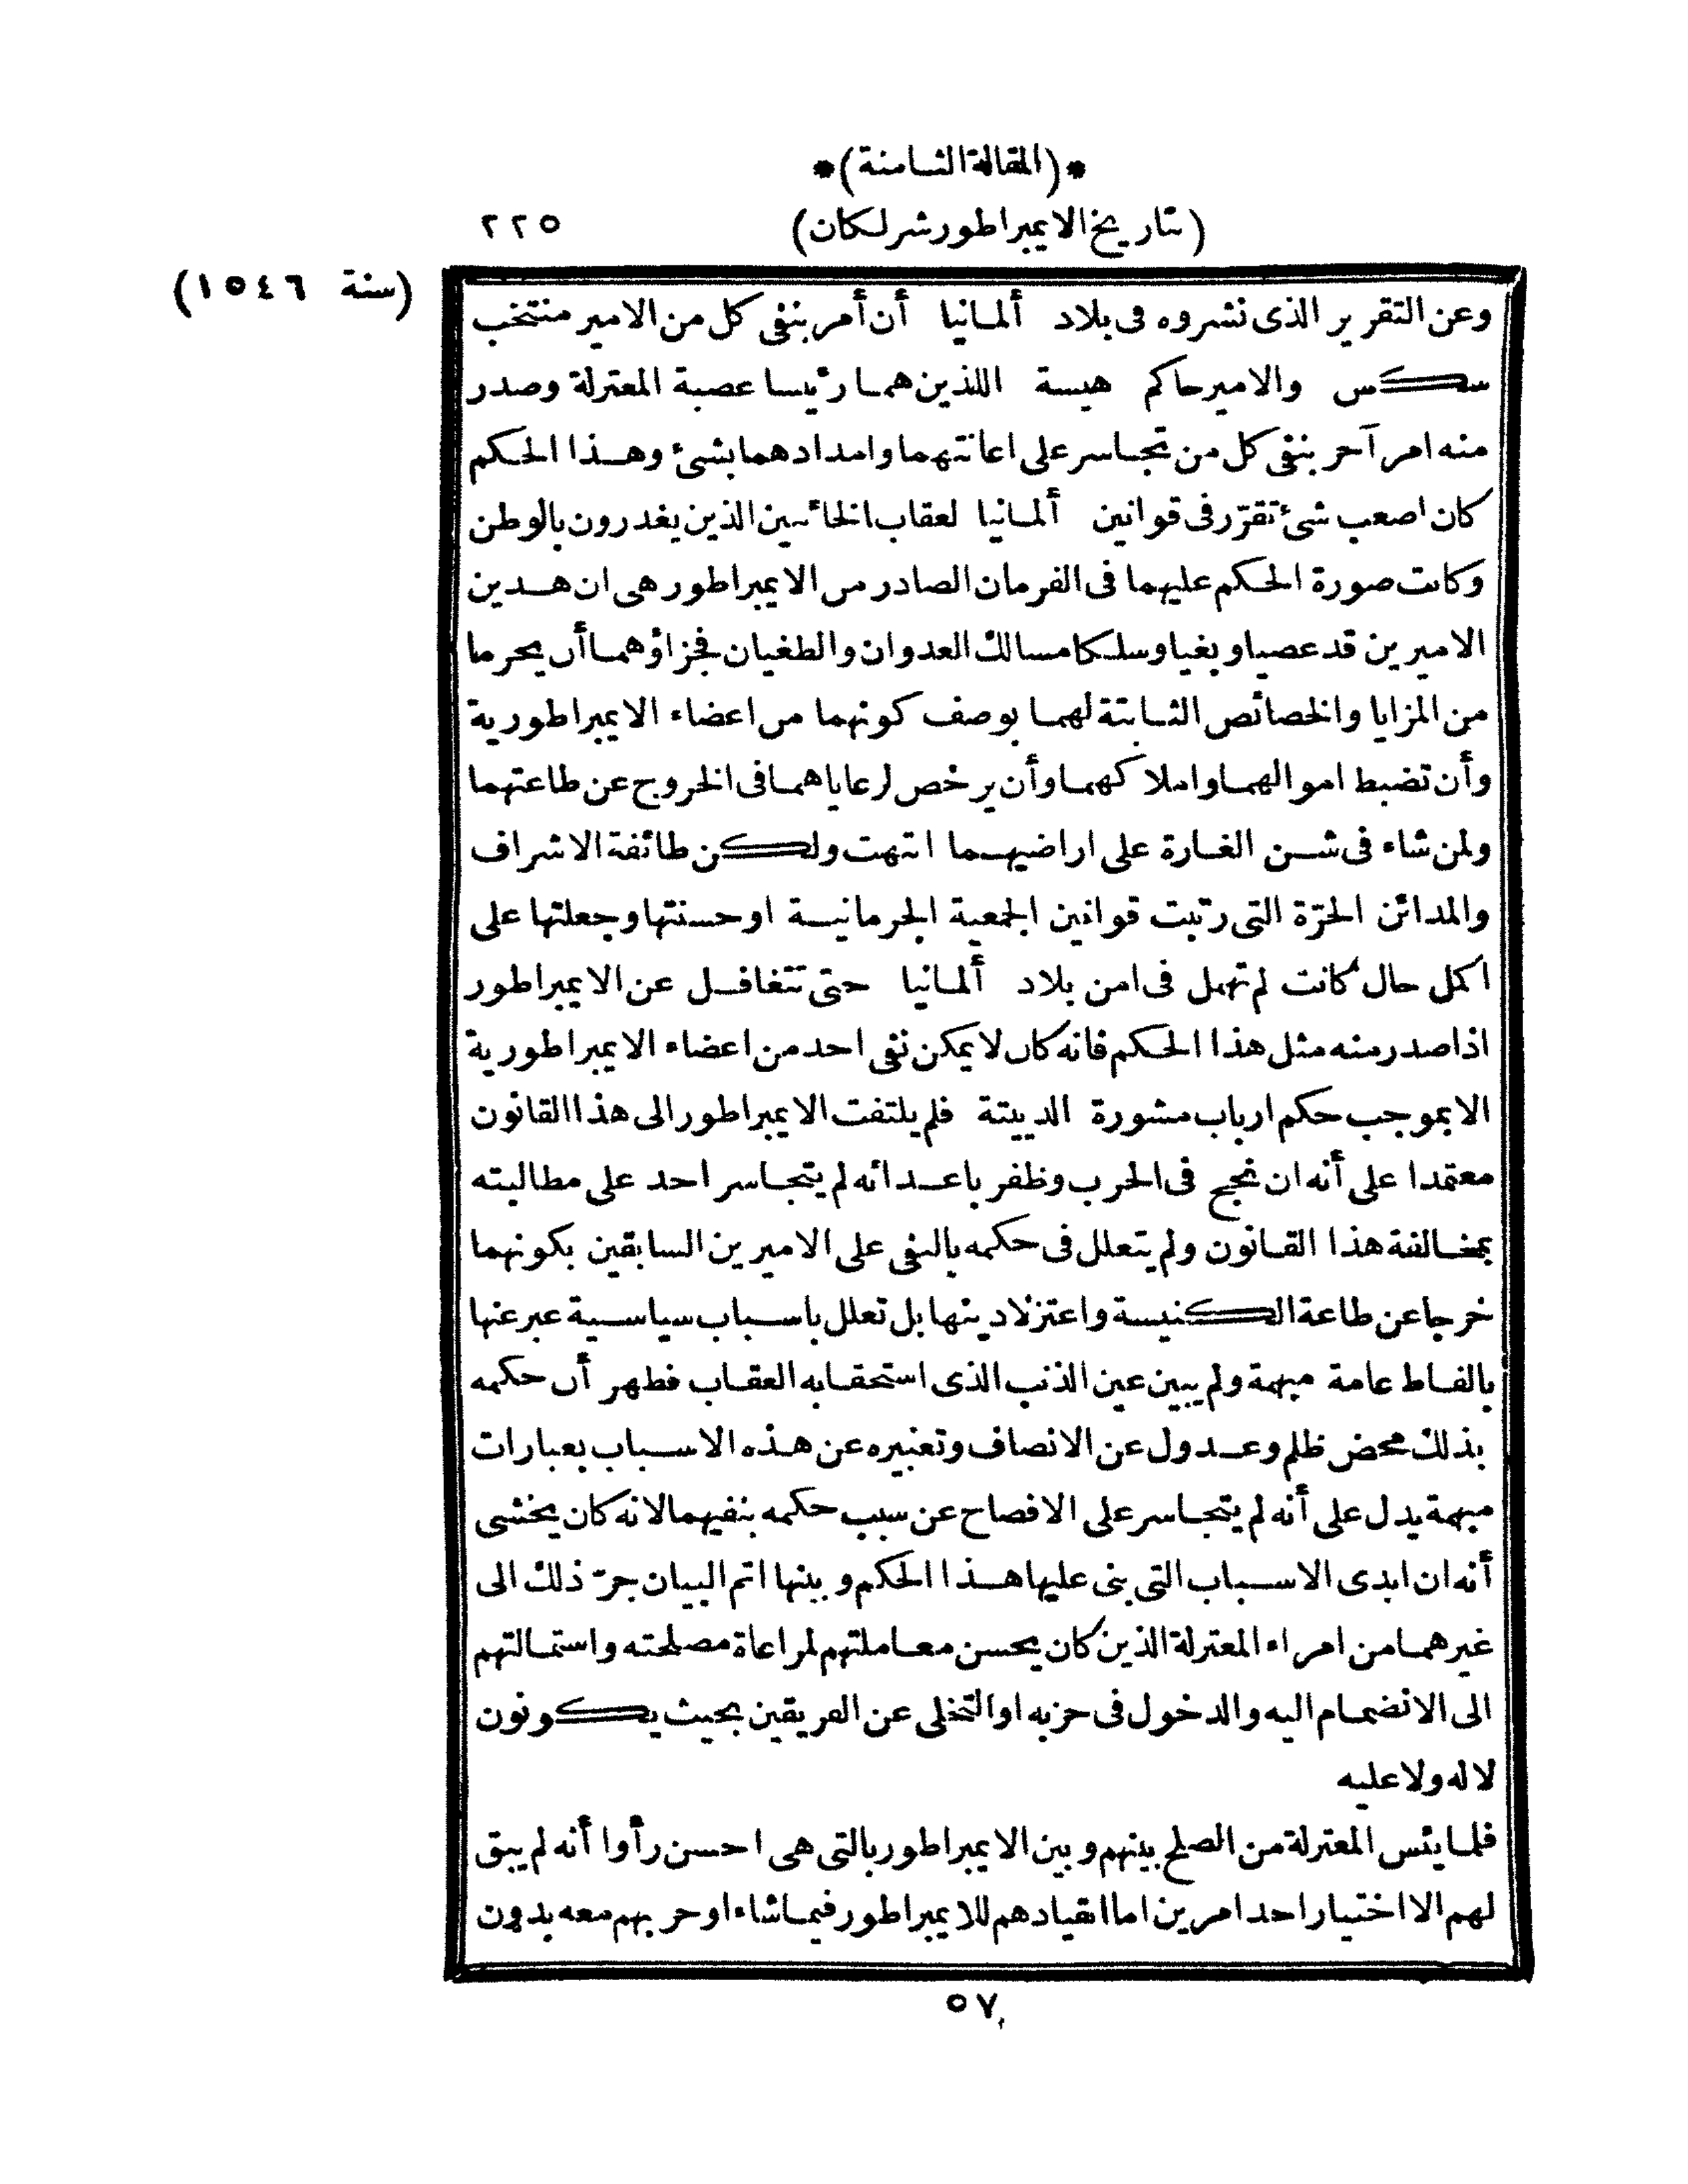 *(المقالة الثامنة)*
(تاريخ الايمبراطور شرلكان) ٢٢٥
(سنة ١٥٤٦)
وعن التقرير الذى نشروه فى بلاد ألمانيا أن أمر بنفى كل من الامير منتخب
سكس والامير حاكم هيسة اللذين هما رئيسا عصبة المعتزلة وصدر
منه امر آخر بنفى كل من تجاسر على اعانتهما وامدادهما بشئ وهذا الحكم
كان اصعب شئ تقرّر فى قوانين ألمانيا لعقاب الخائنين الذين يغدرون بالوطن
وكانت صورة الحكم عليهما فى الفرمان الصادر من الايمبراطور هى ان هذين
الاميرين قد عصيا وبغيا وسلكا مسالك العدوان والطغيان فجزاؤهما أن يحرما
من المزايا والخصائص الثابتة لهما بوصف كونهما من اعضاء الايمبراطورية
وأن تضبط اموالهما واملاكهما وأن يرخص لرعاياهما فى الخروج عن طاعتهما
ولمن شاء فى شن الغارة على اراضيهما انتهت ولكن طائفة الاشراف
والمدائن الحرّة التى رتبت قوانين الجمعية الجرمانية او حسنتها وجعلتها على
اكمل حال كانت لم تهمل فى امن بلاد ألمانيا حتى تتغافل عن الايمبراطور
اذا صدر منه مثل هذا الحكم فانه كان لا يمكن نفى احد من اعضاء الايمبراطورية
الا بموجب حكم ارباب مشورة الدييتة فلم يلتفت الايمبراطور الى هذا القانون
معتمدا على أنه ان نجح فى الحرب وظفر باعدائه لم يتجاسر احد على مطالبته
بمخالفة هذا القانون ولم يتعلل فى حكمه بالنفى على الاميرين السابقين بكونهما
خرجا عن طاعة الكنيسة واعتزلا دينها بل تعلل باسباب سياسية عبر عنها
بالفاظ عامة مبهمة ولم يبين عين الذنب الذى استحقا به العقاب فظهر أن حكمه
بذلك محض ظلم وعدول عن الانصاف وتعبيره عن هذه الاسباب بعبارات
مبهمة يدل على أنه لم يتجاسر على الافصاح عن سبب حكمه بنفيهما لانه كان يخشى
أنه ان ابدى الاسباب التى بنى عليها هذا الحكم وبينها اتم البيان جرّ ذلك الى
غيرهما من امراء المعتزلة الذين كان يحسن معاملتهم لمراعاة مصلحته واستمالتهم
الى الانضمام اليه والدخول فى حزبه او التخلى عن الفريقين بحيث يكونون
لا له ولا عليه
فلما يئس المعتزلة من الصلح بينهم وبين الايمبراطور بالتى هى احسن رأوا أنه لم يبق
لهم الا اختيار احد امرين اما انقيادهم للايمبراطور فيما شاء او حربهم معه بدون
٥٧